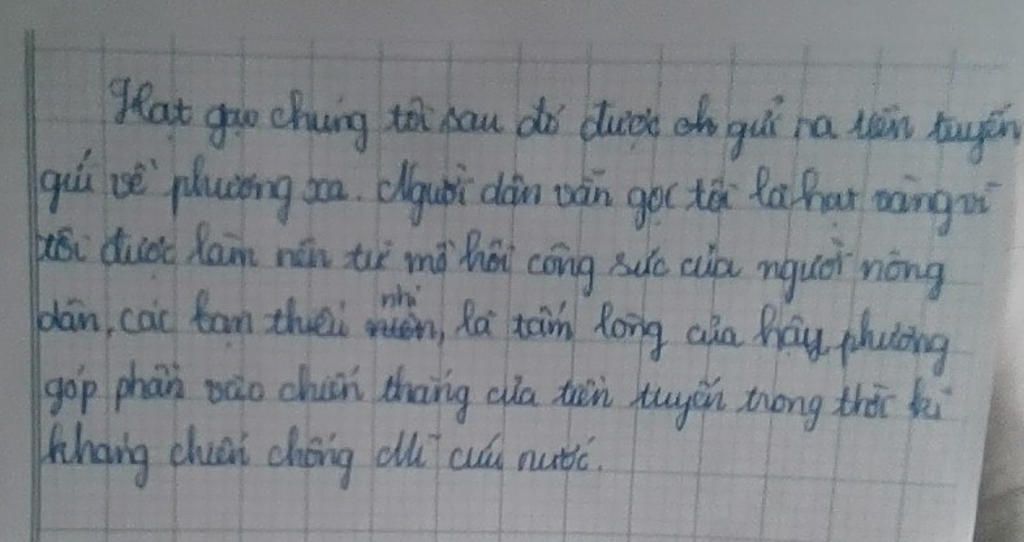 Hạt gạo chúng tôi sau đó được gửi ra tiền tuyến
gửi về phương xa. Người dân vẫn gọi tôi là hạt vàng vì
tôi được làm nên từ mồ hôi công sức của người nông
dân, các bạn thiếu nhi, là tấm lòng của hậu phương
góp phần vào chiến thắng của tiền tuyến trong thời kì
kháng chiến chống Mĩ cứu nước.